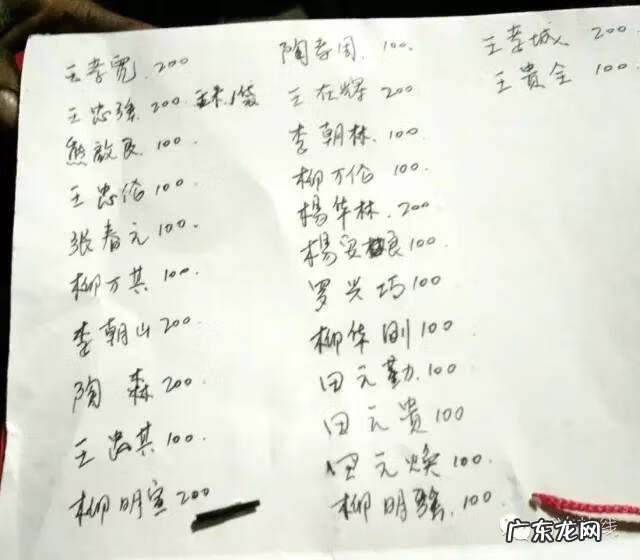 王孝宽 200
王忠强 200 玉米1袋
熊敌良 100
王忠伦 100
张春元 100
柳万其 100
李朝山 200
陶森 200
王忠其 100
柳明宣 200
陶孝国 100
王在辉 200
李朝林 100
柳万伦 100
杨华林 200
杨安良 100
罗兴巧 100
柳华刚 100
田元勤 100
田元贵 100
田元焕 100
柳明强 100
王孝城 200
王贵全 100
广东龙网